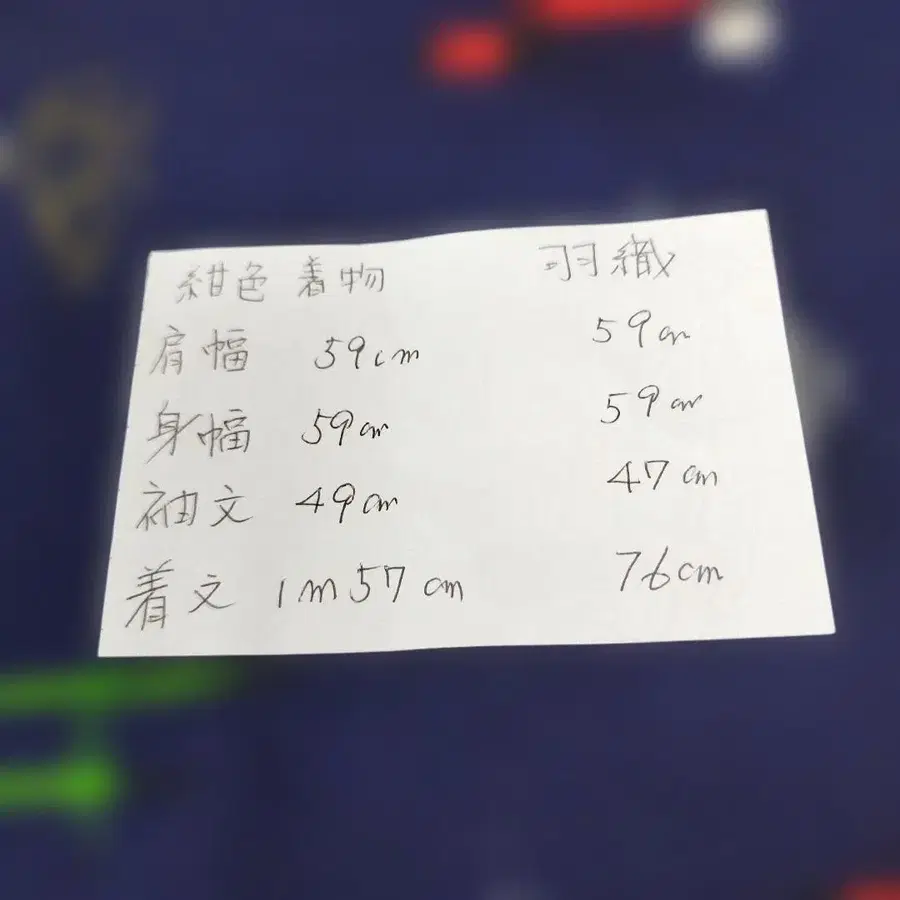 紺色 着物 羽織
肩幅 59cm 59cm
身幅 59cm 59cm
袖文 49cm 47cm
着文 1m57cm 76cm